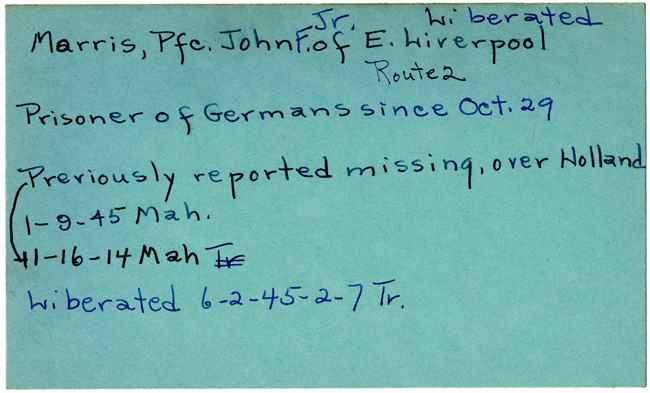 Marris, Pfc. John F. Jr. of E. Liverpool Liberated
Route 2
Prisoner of Germans since Oct. 29
Previously reported missing, over Holland
1-9-45 Mah.
11-16-14 Mah Tr
Liberated 6-2-45-2-7 Tr.